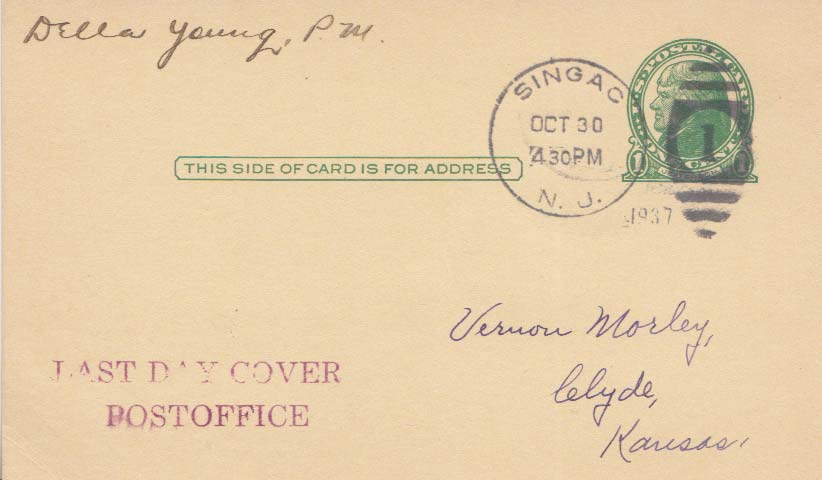 Della Young, P.M.
SINGAC
OCT 30
4 30 PM
N. J.
1937
U.S. POSTAL CARD
1
ONE CENT
THIS SIDE OF CARD IS FOR ADDRESS
Vernon Morley,
Clyde,
Kansas.
LAST DAY COVER
POSTOFFICE